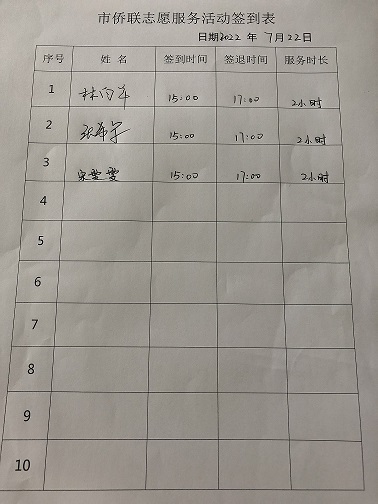 市侨联志愿服务活动签到表
日期2022 年 7月22日
序号 姓 名 签到时间 签退时间 服务时长
1 15:00 17:00 2小时
2 15:00 17:00 2小时
3 15:00 17:00 2小时
4
5
6
7
8
9
10